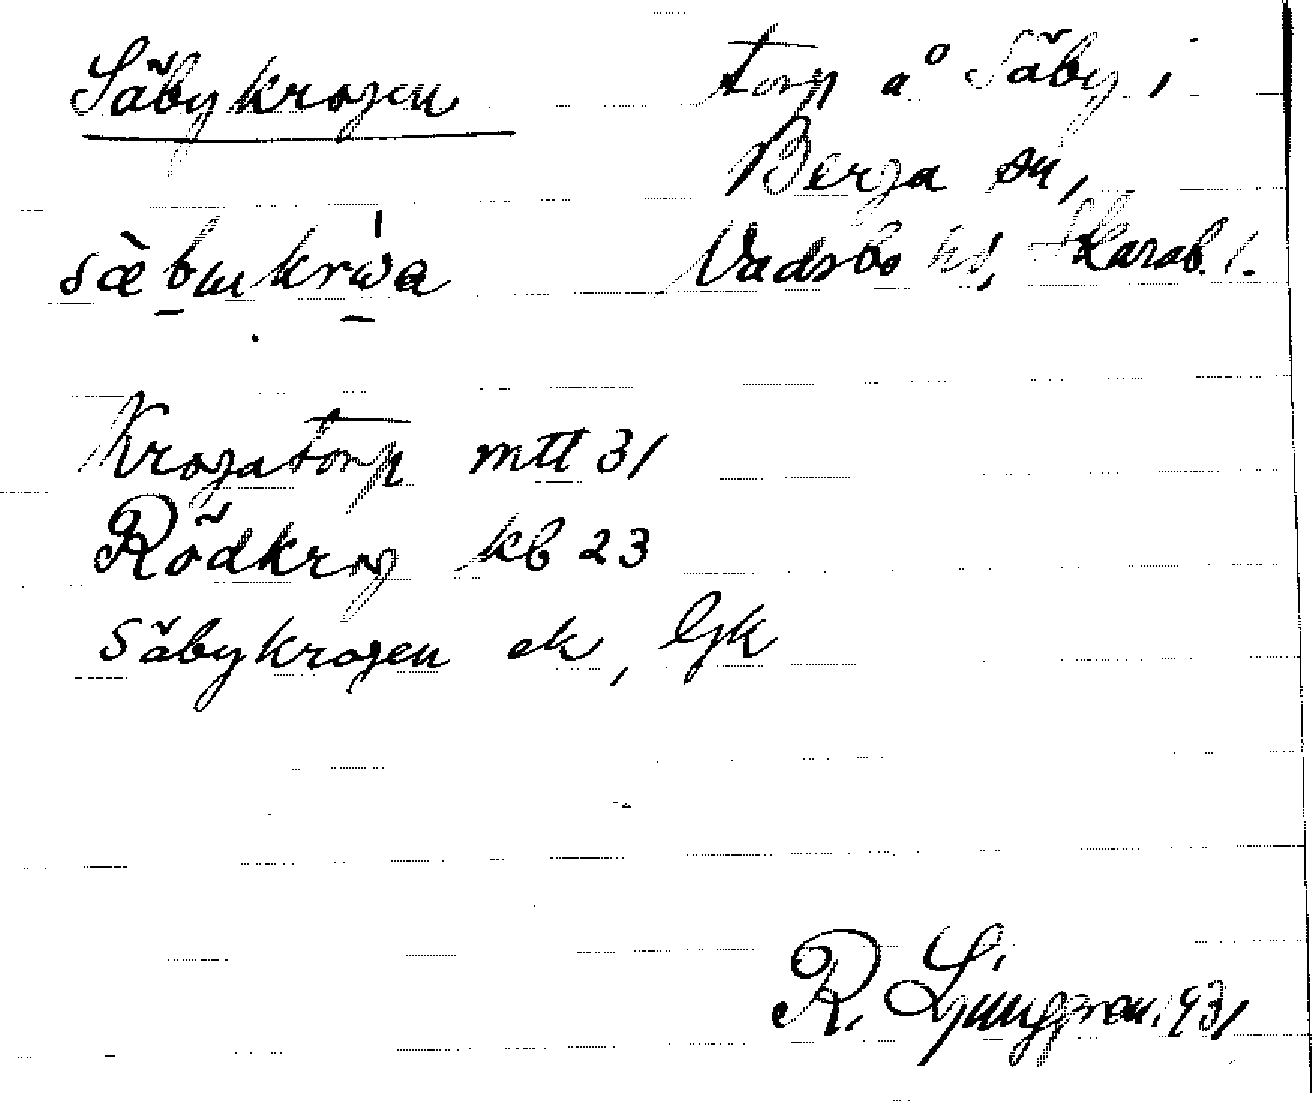 Säbykrogen
torp å Säby i
Berga sn,
Vadsbo hd, Skarab. l.
sä̀bu krẃa
Krogatorp mtt 31
Rödkrog kb 23
Säbykrogen ek, Gk
R. Ljunggren 1931